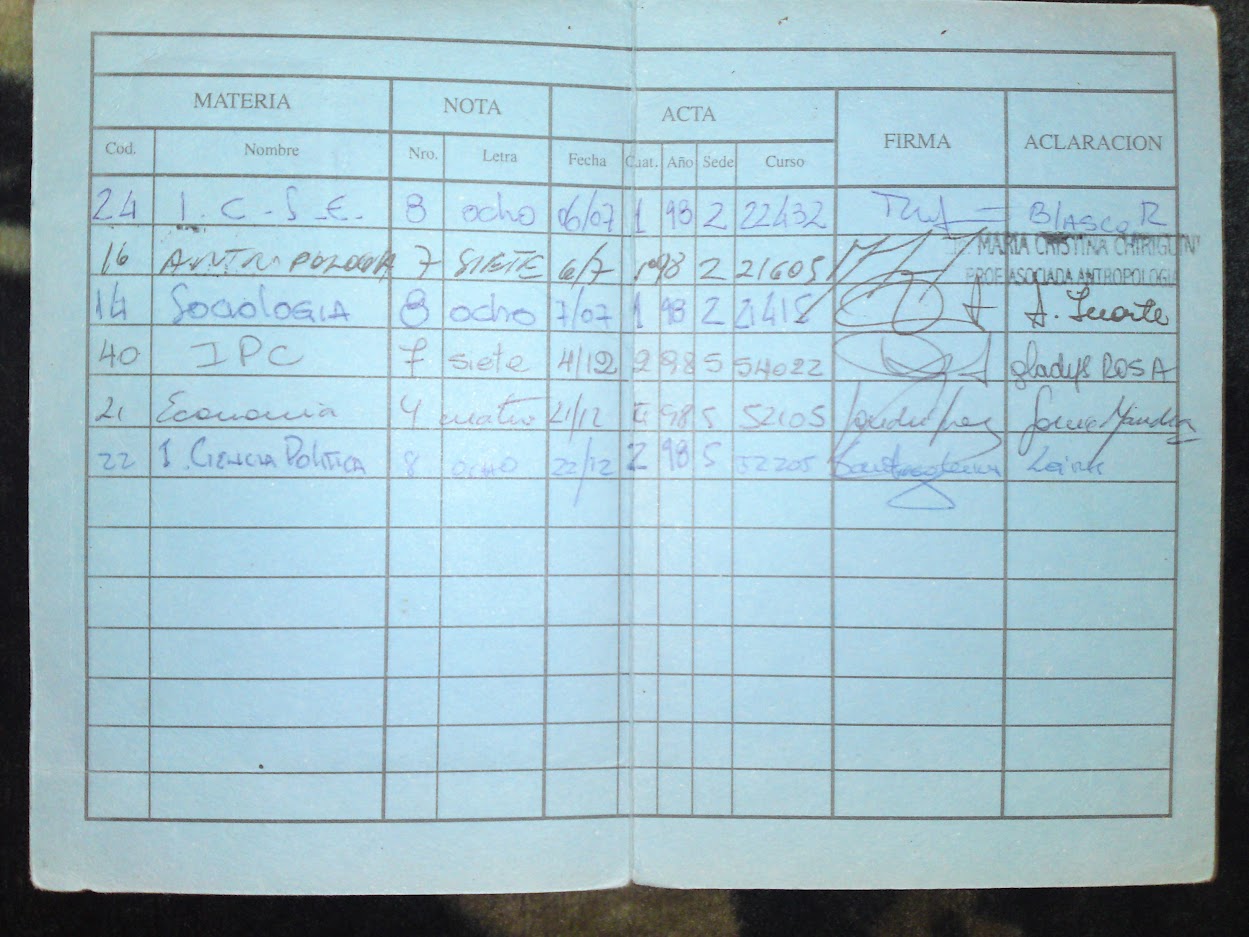 MATERIA NOTA ACTA FIRMA ACLARACION
Cod. Nombre Nro. Letra Fecha Cuat. Año Sede Curso
24 I.C.S.E. 8 ocho 06/07 1 98 2 22432 Blasco R
MARIA CRISTINA CHIRIGUINI
16 ANTROPOLOGIA 7 SIETE 6/7 1º 98 2 21605
PROF. ASOCIADA ANTROPOLOGIA
14 Sociologia 8 ocho 7/07 1 98 2 21415
40 IPC 7 siete 4/12 2 98 5 54022 gladys ROSA
21 Economia 4 cuatro 21/12 98 5 52105
22 I. Ciencia Politica 8 ocho 22/12 2 98 5 52205